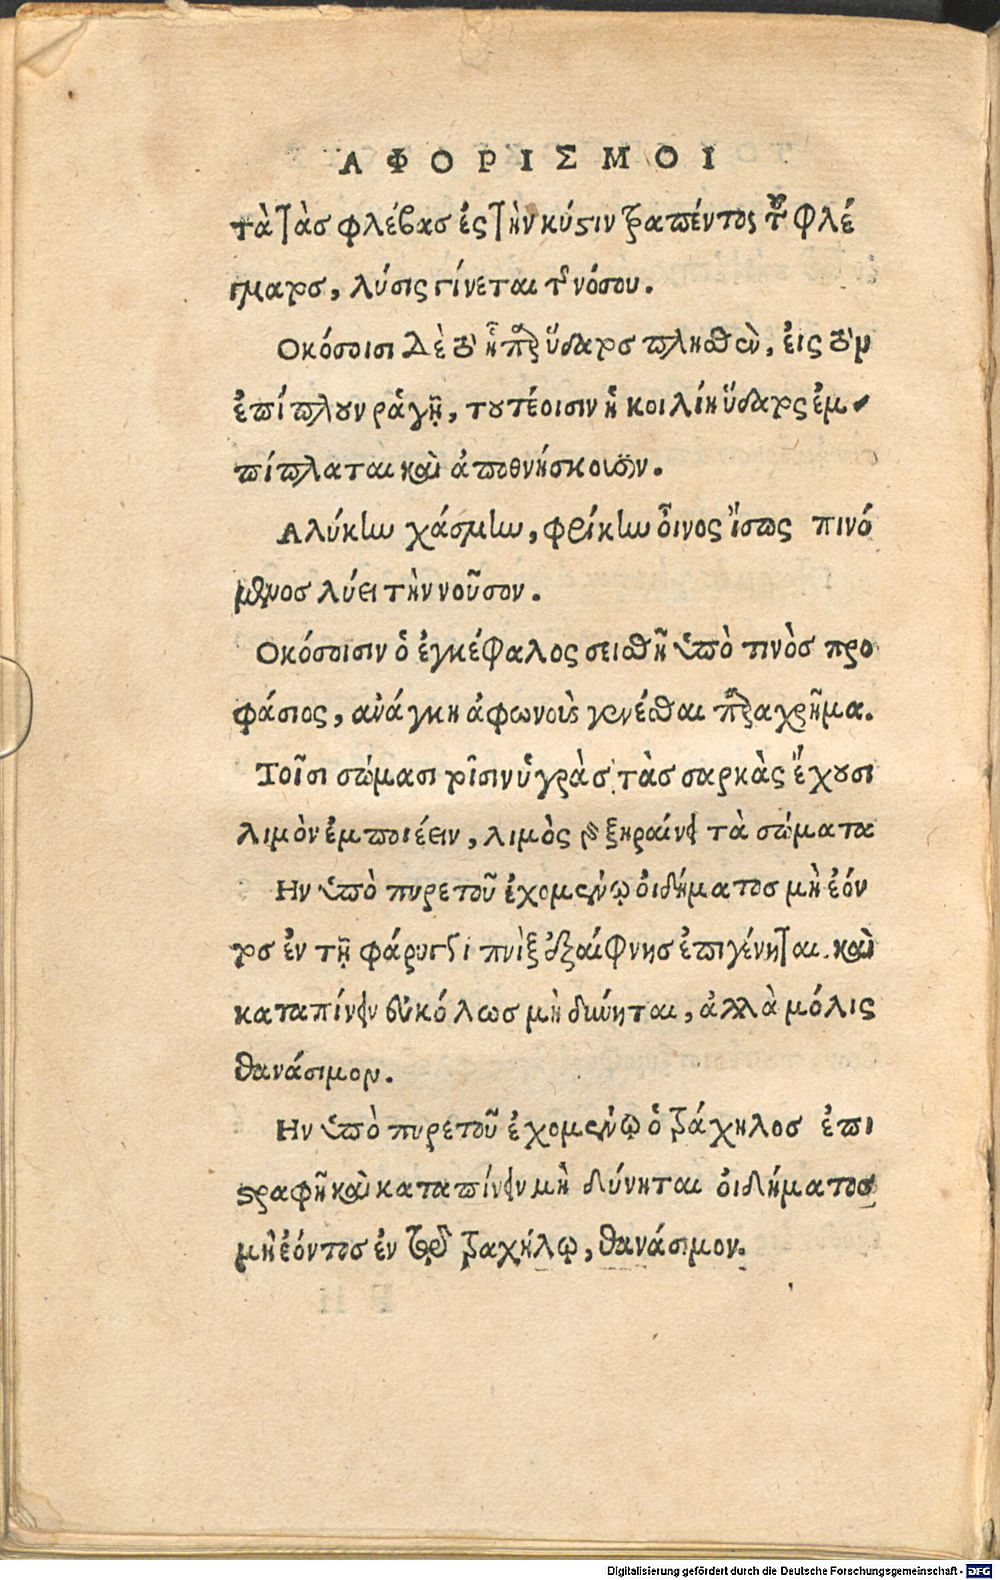 ΑΦΟΡΙΣΜΟΙ
τὰ τὰσ φλέβασ ἐς τὴν κύστιν τραπέντος τοῦ φλέ
γματος, λύσις γίνεται τοῦ νόσου.
Οκόσοισι δὲ τὸ ἧπαρ ὕδατος πλησθὲν, εἰς τὸν
ἐπίπλουν ῥαγῇ, τουτέοισιν ἡ κοιλίη ὕδατος ἐμ-
πίπλαται καὶ ἀποθνήσκουσιν.
Αλύκῃ χάσμῃ, φρίκῃ οἶνος ἴσος πινό
μενος λύει τὴν νοῦσον.
Οκόσοισιν ὁ ἐγκέφαλος σεισθῇ ὑπὸ τινὸσ προ
φάσιος, ἀνάγκη ἀφώνους γενέσθαι παραχρῆμα.
Τοῖσι σώμασι τοῖσιν ὑγρὰσ τὰσ σαρκὰς ἔχουσι
λιμὸν ἐμποιέειν, λιμὸς γὰρ ξηραίνει τὰ σώματα
Ην ὑπὸ πυρετοῦ ἐχομένῳ οἰδήματοσ μὴ ἐόν
τος ἐν τῇ φάρυγγι πνὶξ ἐξαίφνησ ἐπιγένηται. καὶ
καταπίνειν εὐκόλωσ μὴ δύνηται, ἀλλὰ μόλις
θανάσιμον.
Ην ὑπὸ πυρετοῦ ἐχομένῳ ὁ τράχηλοσ ἐπι
στραφῇ καὶ καταπίνειν μὴ δύνηται οἰδήματοσ
μὴ ἐόντοσ ἐν τῷ τραχήλῳ, θανάσιμον.
Digitalisierung gefördert durch die Deutsche Forschungsgemeinschaft - DFG